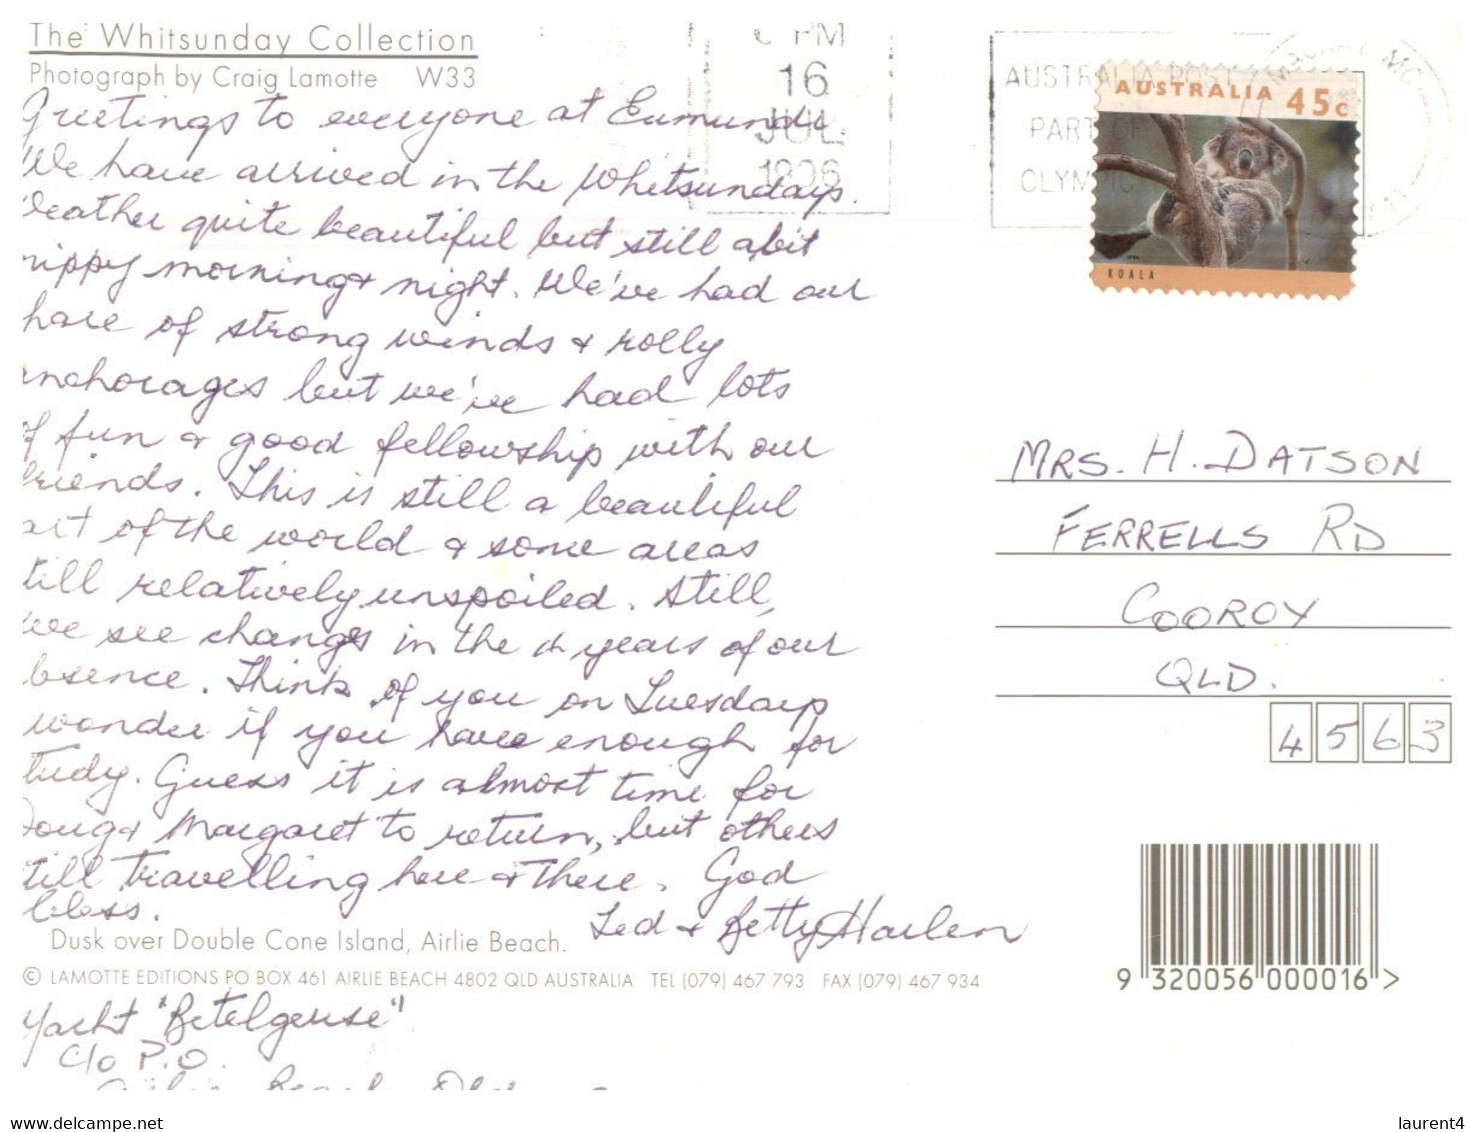 The Whitsunday Collection
Photograph by Craig Lamotte W33
Greetings to everyone at Eumundi
We have arrived in the Whitsundays.
eather quite beautiful but still a bit
nippy morning & night. We've had our
hare of strong winds & rolly
nchorages but we've had lots
of fun & good fellowship with our
friends. This is still a beautiful
art of the world & some areas
till relatively unspoiled. Still,
we see changes in the years of our
bsence. Think of you on Tuesdays
wonder if you have enough for
tudy. Guess it is almost time for
Doug & Margaret to return, but others
till travelling here & there. God
bless.
Ted & Betty Harlen
Dusk over Double Cone Island, Airlie Beach.
© LAMOTTE EDITIONS PO BOX 461 AIRLIE BEACH 4802 QLD AUSTRALIA TEL (079) 467 793 FAX (079) 467 934
Yacht "Betelgeuse"
C/o P.O.
Airlie Beach Qld
PM
16
JUL
1996
AUSTRALIA POST
PART OF
OLYMPIC
AUSTRALIA 45c
KOALA
MRS. H. DATSON
FERRELLS RD
COOROY
QLD.
4563
9 320056 000016 >
laurent4